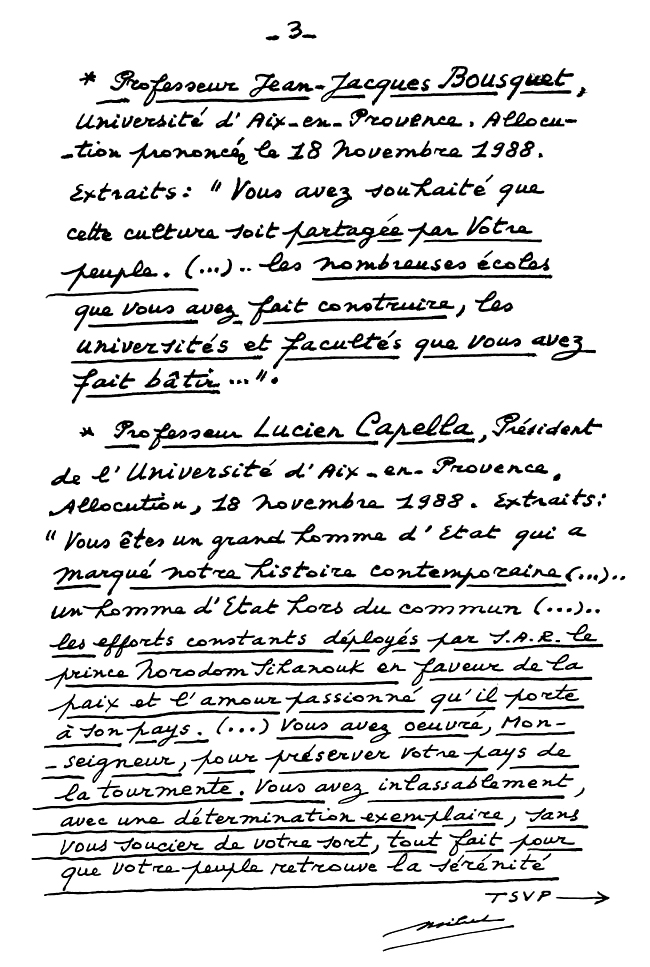 _ 3 _
* Professeur Jean-Jacques Bousquet,
Université d'Aix-en-Provence. Allocu-
-tion prononcée le 18 Novembre 1988.
Extraits: "Vous avez souhaité que
cette culture soit partagée par Votre
peuple. (...).. les nombreuses écoles
que vous avez fait construire, les
universités et facultés que vous avez
fait bâtir...".
* Professeur Lucien Capella, Président
de l'Université d'Aix-en-Provence.
Allocution, 18 Novembre 1988. Extraits:
"Vous êtes un grand homme d'Etat qui a
marqué notre histoire contemporaine (...)..
un homme d'Etat hors du commun (...)..
les efforts constants déployés par S.A.R. le
prince Norodom Sihanouk en faveur de la
paix et l'amour passionné qu'il porte
à son pays. (...) Vous avez oeuvré, Mon-
-seigneur, pour préserver votre pays de
la tourmente. Vous avez inlassablement,
avec une détermination exemplaire, sans
vous soucier de votre sort, tout fait pour
que votre peuple retrouve la sérénité
TSVP →